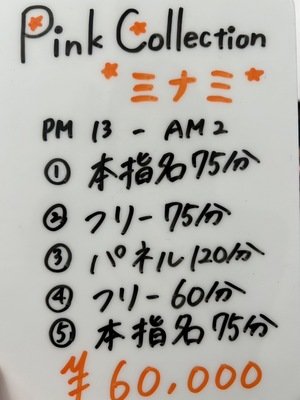 Pink Collection
ミナミ
PM 13 - AM 2
① 本指名 75分
② フリー 75分
③ パネル 120分
④ フリー 60分
⑤ 本指名 75分
¥60,000